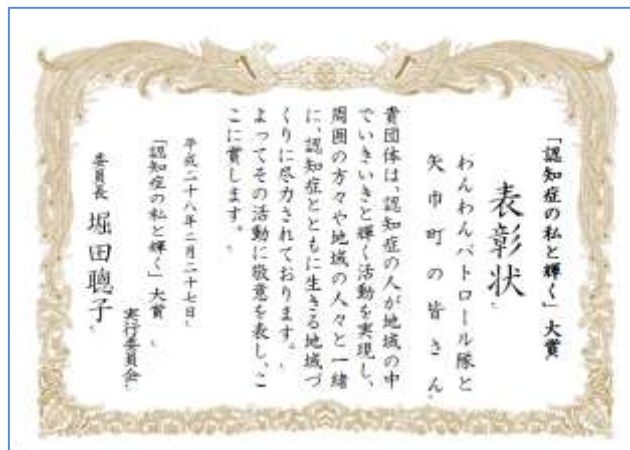 「認知症の私と輝く」大賞
表彰状
わんわんパトロール隊と
矢巾町の皆さん
貴団体は、認知症の人が地域の中
でいきいきと輝く活動を実現し、
周囲の方々や地域の人々と一緒
に、認知症とともに生きる地域づ
くりに尽力されております。
よってその活動に敬意を表し、こ
こに賞します。
平成二十八年二月二十七日
「認知症の私と輝く」大賞
実行委員会
委員長 堀田聰子